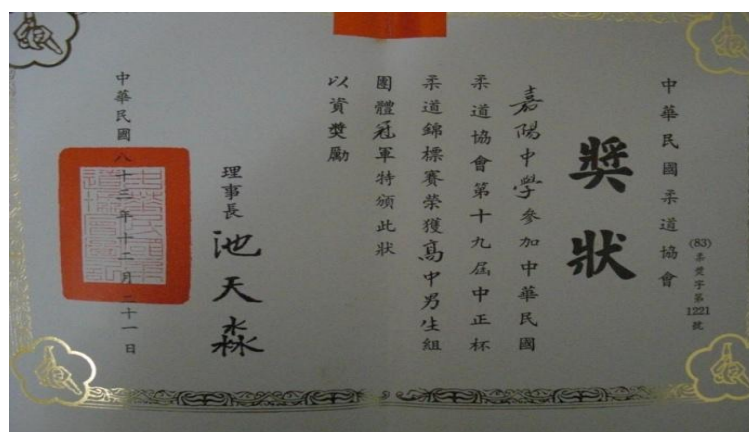 中華民國柔道協會
(83)柔獎字第1221號
獎狀
嘉陽中學參加中華民國
柔道協會第十九屆中正杯
柔道錦標賽榮獲高中男生組
團體冠軍特頒此狀
以資獎勵
理事長 池天淼
中華民國八十三年十二月二十一日